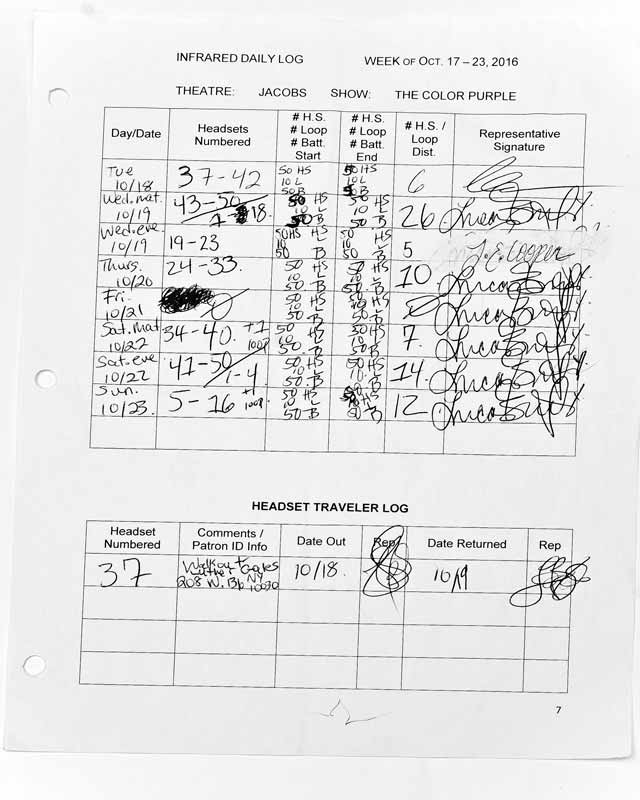 INFRARED DAILY LOG WEEK OF OCT. 17 – 23, 2016
THEATRE: JACOBS SHOW: THE COLOR PURPLE
Day/Date
Headsets
Numbered
# H.S.
# Loop
# Batt.
Start
# H.S.
# Loop
# Batt.
End
# H.S. /
Loop
Dist.
Representative
Signature
Tue
10/18
37-42
50 HS
10 L
50 B
50 HS
10 L
50 B
6
Wed. mat.
10/19
43-50
1-18.
50 HS
10 L
50 B
50 HS
10 L
50 B
26
Wed. eve
10/19
19-23
50 HS
10 L
50 B
50 HS
10 L
50 B
5
J. E. Cooper
Thurs.
10/20
24-33.
50 HS
10 L
50 B
50 HS
10 L
50 B
10
Fri.
10/21
50 HS
10 L
50 B
50 HS
10 L
50 B
Sat. mat
10/22
34-40. +1 loop
50 HS
10 L
50 B
50 HS
10 L
50 B
7.
Sat. eve
10/22
41-50
1-4
50 HS
10 L
50 B
50 HS
10 L
50 B
14.
Sun.
10/23
5-16 +1 loop
50 HS
10 L
50 B
50 HS
10 L
50 B
12
HEADSET TRAVELER LOG
Headset
Numbered
Comments /
Patron ID Info
Date Out
Rep
Date Returned
Rep
37
Walkout
NY
208 W.
10/18.
10/19
7